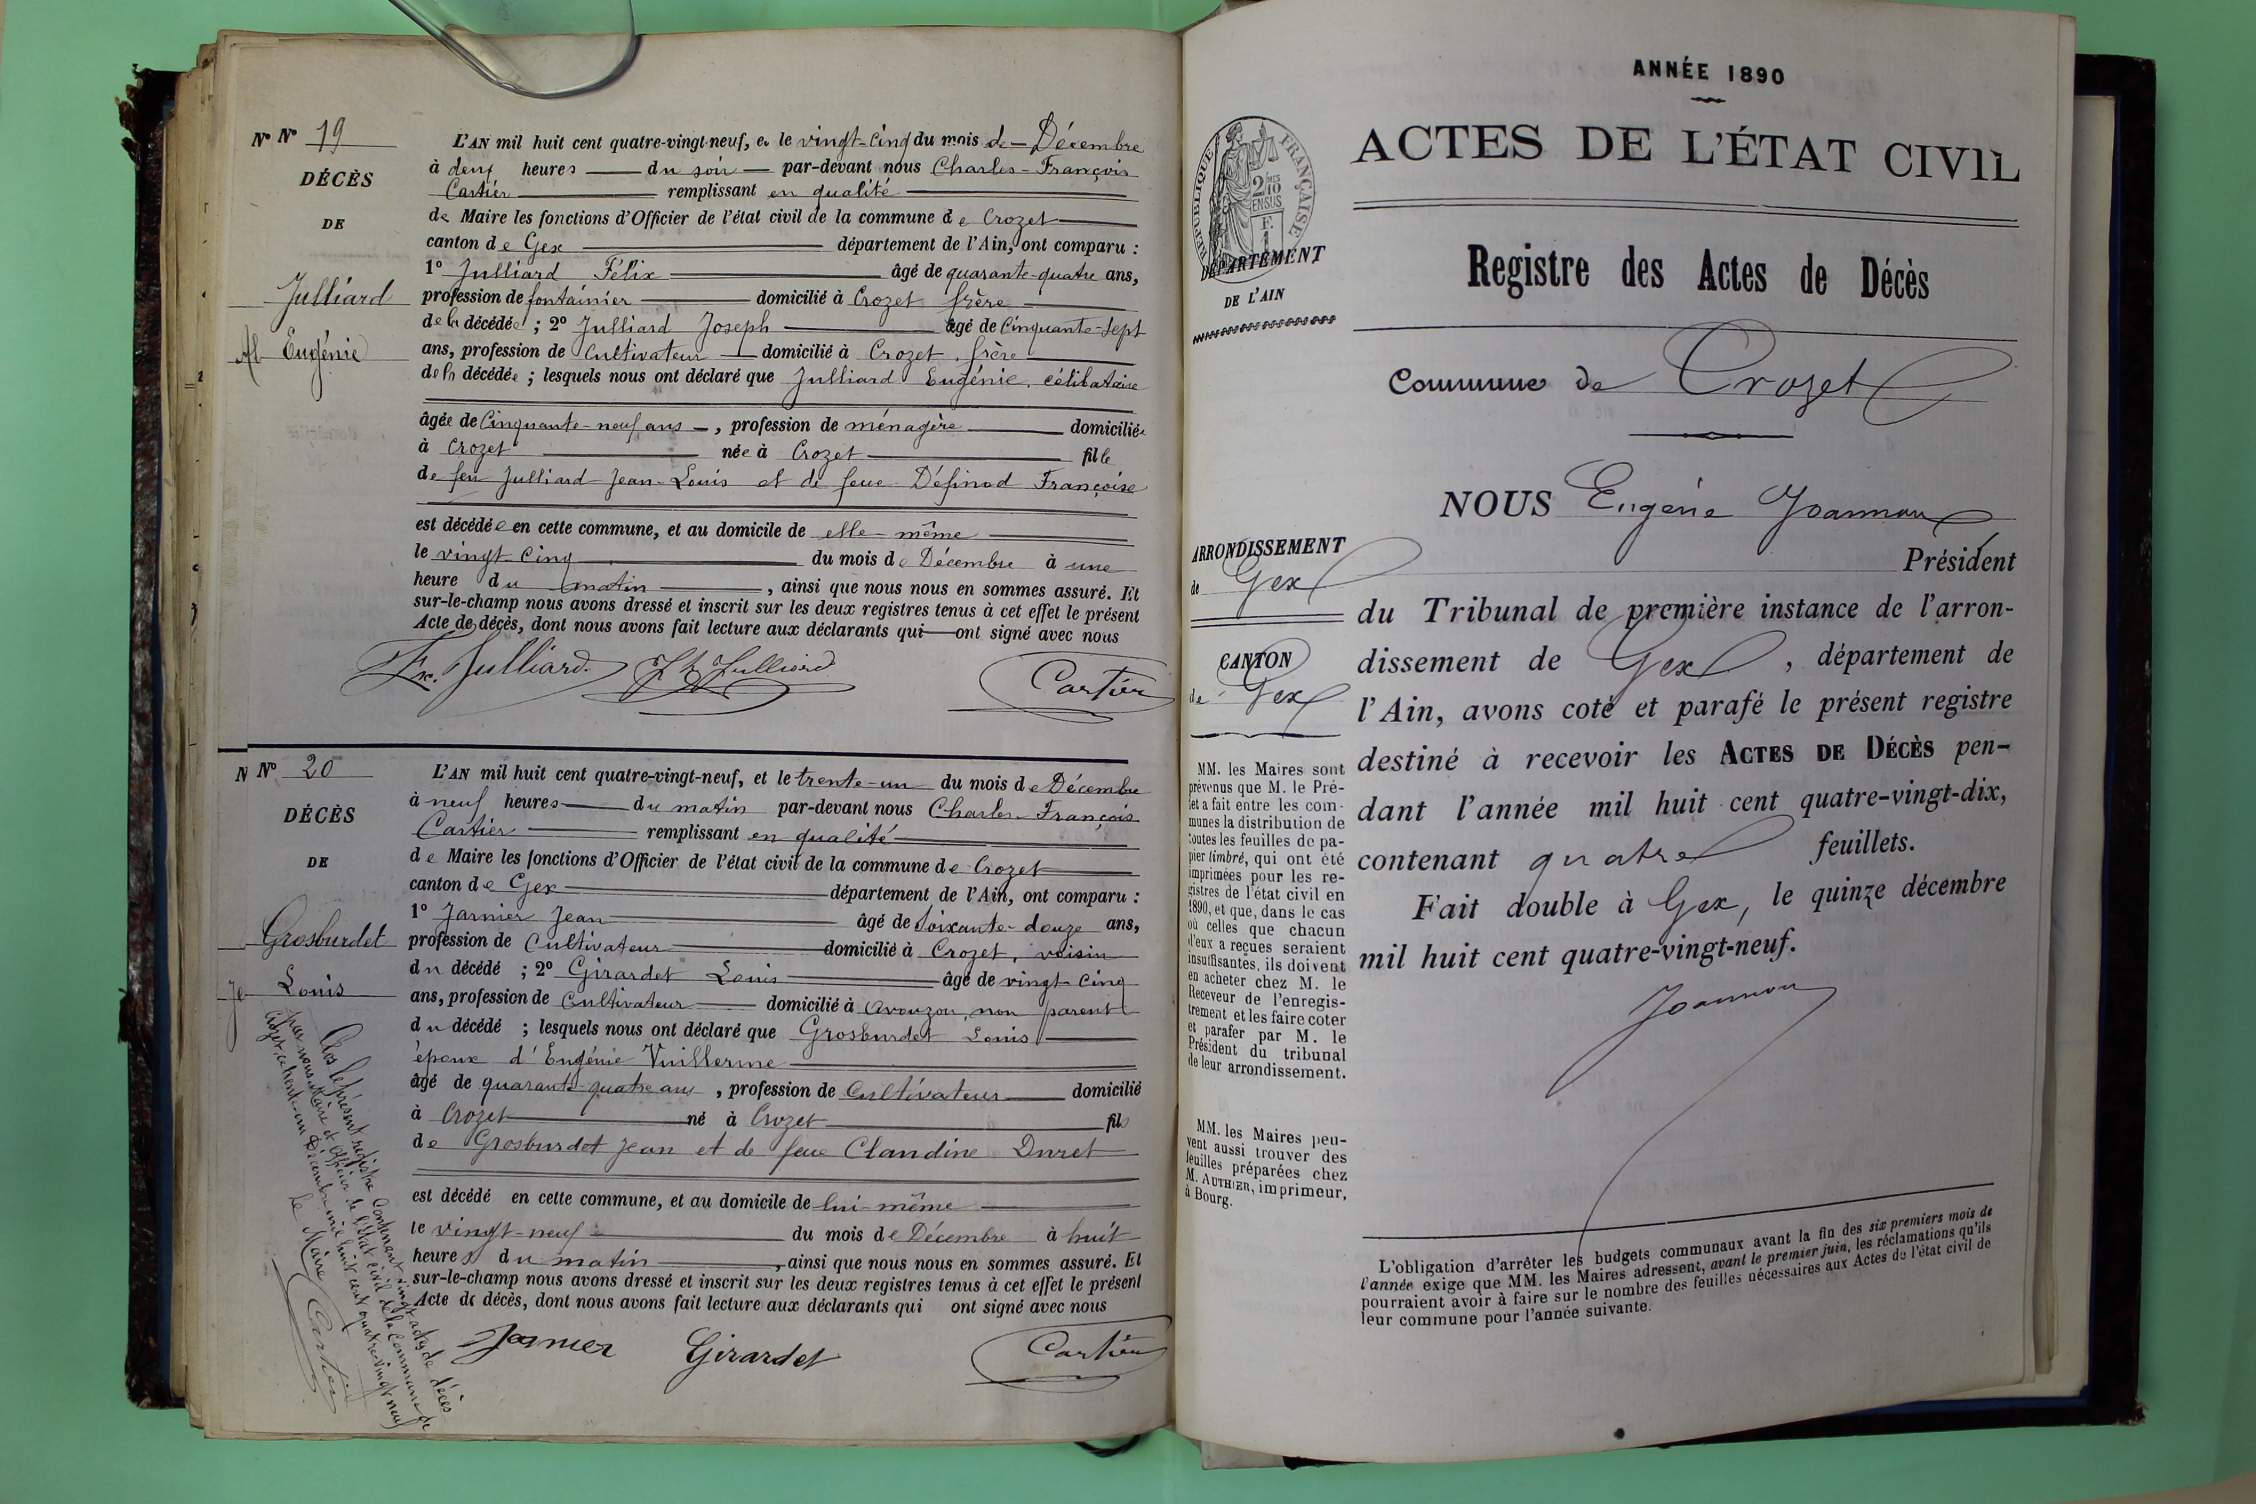 N° N° 19
DÉCÈS
DE
Julliard
Eugénie
L'AN mil huit cent quatre-vingt-neuf, et le vingt-cinq du mois de Décembre
à deux heures du soir par-devant nous Charles-François
Cartier remplissant en qualité
de Maire les fonctions d'Officier de l'état civil de la commune de Crozet
canton de Gex département de l'Ain, ont comparu :
1° Julliard Félix âgé de quarante-quatre ans,
profession de fontainier domicilié à Crozet frère
de la décédée ; 2° Julliard Joseph âgé de cinquante-sept
ans, profession de cultivateur domicilié à Crozet, frère
de la décédée ; lesquels nous ont déclaré que Julliard Eugénie, célibataire
âgée de cinquante-neuf ans, profession de ménagère domiciliée
à Crozet née à Crozet fille
de feu Julliard Jean-Louis et de feue Définod Françoise
est décédée en cette commune, et au domicile de elle-même
le vingt-cinq du mois de Décembre à une
heure du matin, ainsi que nous nous en sommes assuré. Et
sur-le-champ nous avons dressé et inscrit sur les deux registres tenus à cet effet le présent
Acte de décès, dont nous avons fait lecture aux déclarants qui ont signé avec nous
Fx. Julliard. Jh Julliard Cartier
N N° 20
DÉCÈS
DE
Grosburdet
Louis
L'AN mil huit cent quatre-vingt-neuf, et le trente-un du mois de Décembre
à neuf heures du matin par-devant nous Charles-François
Cartier remplissant en qualité
de Maire les fonctions d'Officier de l'état civil de la commune de Crozet
canton de Gex département de l'Ain, ont comparu :
1° Jarnier Jean âgé de soixante-douze ans,
profession de cultivateur domicilié à Crozet, voisin
du décédé ; 2° Girardet Louis âgé de vingt-cinq
ans, profession de cultivateur domicilié à Avouzon, non parent
du décédé ; lesquels nous ont déclaré que Grosburdet Louis
époux d'Eugénie Vuillerme
âgé de quarante-quatre ans, profession de cultivateur domicilié
à Crozet né à Crozet fils
de Grosburdet Jean et de feue Claudine Duret
est décédé en cette commune, et au domicile de lui-même
le vingt-neuf du mois de Décembre à huit
heures du matin, ainsi que nous nous en sommes assuré. Et
sur-le-champ nous avons dressé et inscrit sur les deux registres tenus à cet effet le présent
Acte de décès, dont nous avons fait lecture aux déclarants qui ont signé avec nous
Jarnier Girardet Cartier
Clos le présent registre contenant vingt actes de décès
par nous Maire et Officier de l'état civil de la commune de
Crozet, ce trente-un Décembre mil huit cent quatre-vingt-neuf
Le Maire Cartier
ANNÉE 1890
ACTES DE L'ÉTAT CIVIL
Registre des Actes de Décès
Commune de Crozet
NOUS Eugène Joannon
Président
du Tribunal de première instance de l'arron-
dissement de Gex, département de
l'Ain, avons coté et parafé le présent registre
destiné à recevoir les ACTES DE DÉCÈS pen-
dant l'année mil huit cent quatre-vingt-dix,
contenant quatre feuillets.
Fait double à Gex, le quinze décembre
mil huit cent quatre-vingt-neuf.
Joannon
RÉPUBLIQUE FRANÇAISE
2/10 EN SUS
DÉPARTEMENT
DE L'AIN
ARRONDISSEMENT
de Gex
CANTON
de Gex
MM. les Maires sont
prévenus que M. le Pré-
fet a fait entre les com-
munes la distribution de
toutes les feuilles de pa-
pier timbré, qui ont été
imprimées pour les re-
gistres de l'état civil en
1890, et que, dans le cas
où celles que chacun
d'eux a reçues seraient
insuffisantes, ils doivent
en acheter chez M. le
Receveur de l'enregis-
trement et les faire coter
et parafer par M. le
Président du tribunal
de leur arrondissement.
MM. les Maires peu-
vent aussi trouver des
feuilles préparées chez
M. AUTHIER, imprimeur,
à Bourg.
L'obligation d'arrêter les budgets communaux avant la fin des six premiers mois de
l'année exige que MM. les Maires adressent, avant le premier juin, les réclamations qu'ils
pourraient avoir à faire sur le nombre des feuilles nécessaires aux Actes de l'état civil de
leur commune pour l'année suivante.